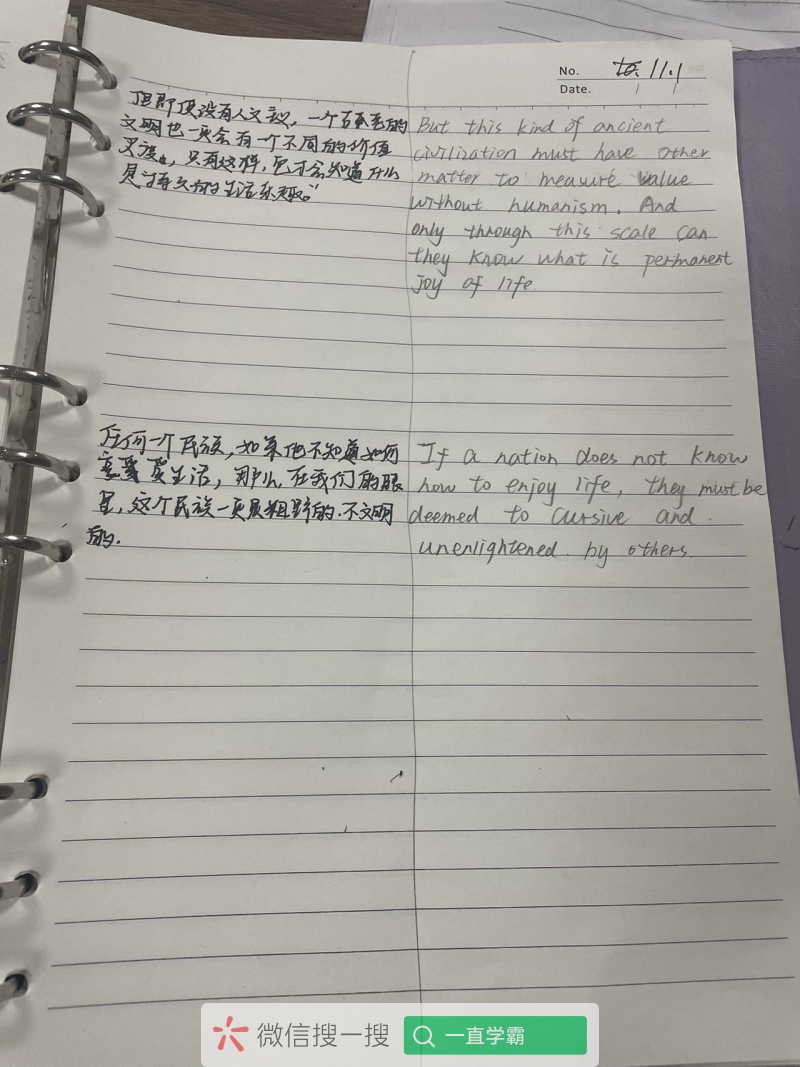 No. 11.1
Date.
但即使没有人文主义，一个古老的
文明也一定会有一个不同的价值
只有这样，它才会知道什么
是持久的生活乐趣。
But this kind of ancient
civilization must have other
matter to measure value
without humanism. And
only through this scale can
they know what is permanent
joy of life
任何一个民族，如果他不知道如何
享受生活，那么，在我们的眼
里，这个民族一定是粗野的.不文明
的.
If a nation does not know
how to enjoy life, they must be
deemed to cursive and
unenlightened by others.
微信搜一搜
一直学霸